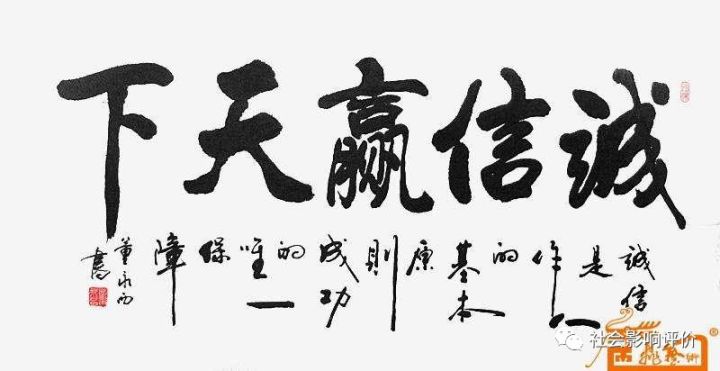 誠信赢天下
誠信是作人的基本原則成功的唯一保障
董永西
書
社会影响评价